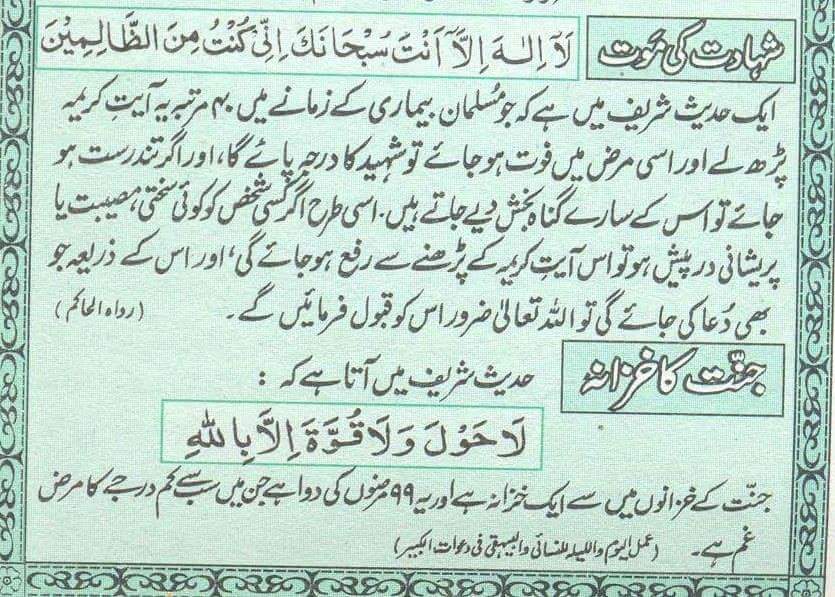 شہادت کی موت
لَآ اِلٰہَ اِلَّآ اَنْتَ سُبْحَانَكَ اِنِّیْ كُنْتُ مِنَ الظَّالِمِیْنَ
ایک حدیث شریف میں ہے کہ جو مُسلمان بیماری کے زمانے میں ۴۰ مرتبہ یہ آیت کریمہ
پڑھ لے اور اسی مرض میں فوت ہو جائے تو شہید کا درجہ پائے گا، اور اگر تندرست ہو
جائے تو اس کے سارے گناہ بخش دیے جاتے ہیں۔ اسی طرح اگر کسی شخص کو کوئی سختی، مصیبت یا
پریشانی درپیش ہو تو اس آیتِ کریمہ کے پڑھنے سے رفع ہو جائے گی، اور اس کے ذریعہ جو
بھی دُعا کی جائے گی تو اللہ تعالیٰ ضرور اس کو قبول فرمائیں گے۔ (رواہ الحاکم)
جنّت کا خزانہ
حدیث شریف میں آتا ہے کہ :
لَا حَوْلَ وَلَا قُوَّةَ اِلَّا بِاللّٰهِ
جنّت کے خزانوں میں سے ایک خزانہ ہے اور یہ ۹۹ مرضوں کی دوا ہے جن میں سب سے کم درجے کا مرض
غم ہے۔ (عمل الیوم واللیلہ للنسائی والبیہقی فی دعوات الکبیر)